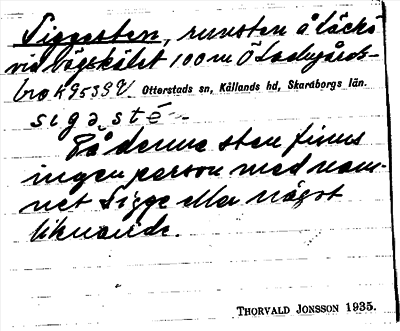 Siggesten, runsten å Läckö
vid vägskälet 100 m Ö Ladugårds-
bro K9533V Otterstads sn, Kållands hd, Skaraborgs län.
sıgəsté-
På denne sten finns
ingen person med nam-
net Sigge eller något
liknande.
THORVALD JONSSON 1935.